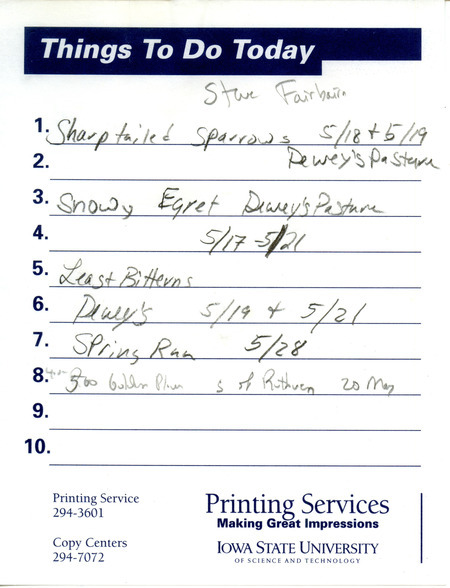 Things To Do Today
Steve Fairbairn
1. Sharptailed Sparrows 5/18 + 5/19
2. Dewey's Pasture
3. Snowy Egret Dewey's Pasture
4. 5/17 - 5/21
5. Least Bitterns
6. Dewey's 5/19 + 5/21
7. Spring Run 5/28
8. 500 Golden Plover s of Ruthven 20 May
9.
10.
Printing Service
294-3601
Copy Centers
294-7072
Printing Services
Making Great Impressions
IOWA STATE UNIVERSITY
OF SCIENCE AND TECHNOLOGY